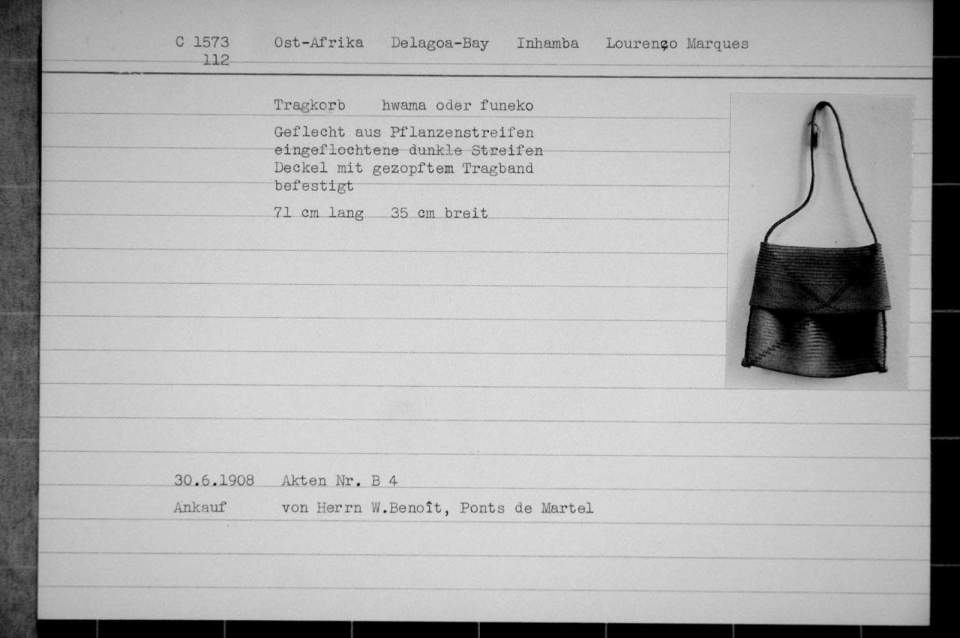 C 1573 Ost-Afrika Delagoa-Bay Inhamba Lourenço Marques
112
Tragkorb hwama oder funeko
Geflecht aus Pflanzenstreifen
eingeflochtene dunkle Streifen
Deckel mit gezopftem Tragband
befestigt
71 cm lang 35 cm breit
30.6.1908 Akten Nr. B 4
Ankauf von Herrn W.Benoît, Ponts de Martel